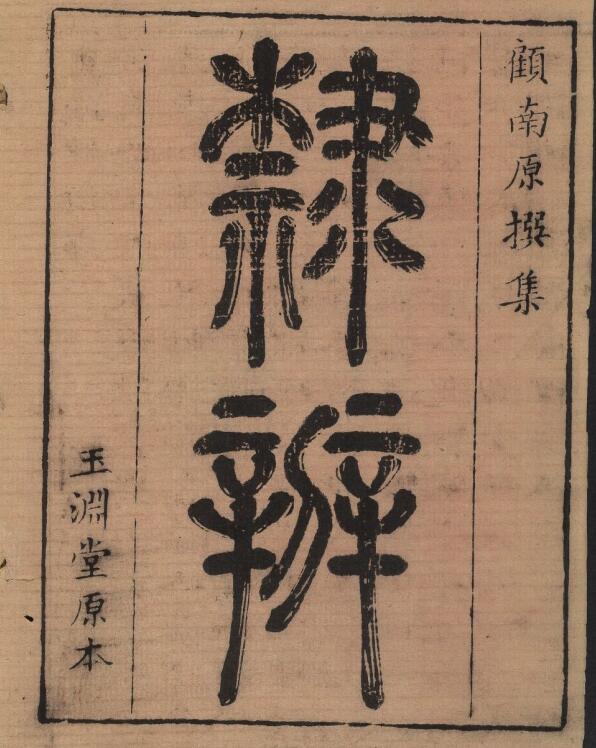 顧南原撰集
隸辨
玉淵堂原本